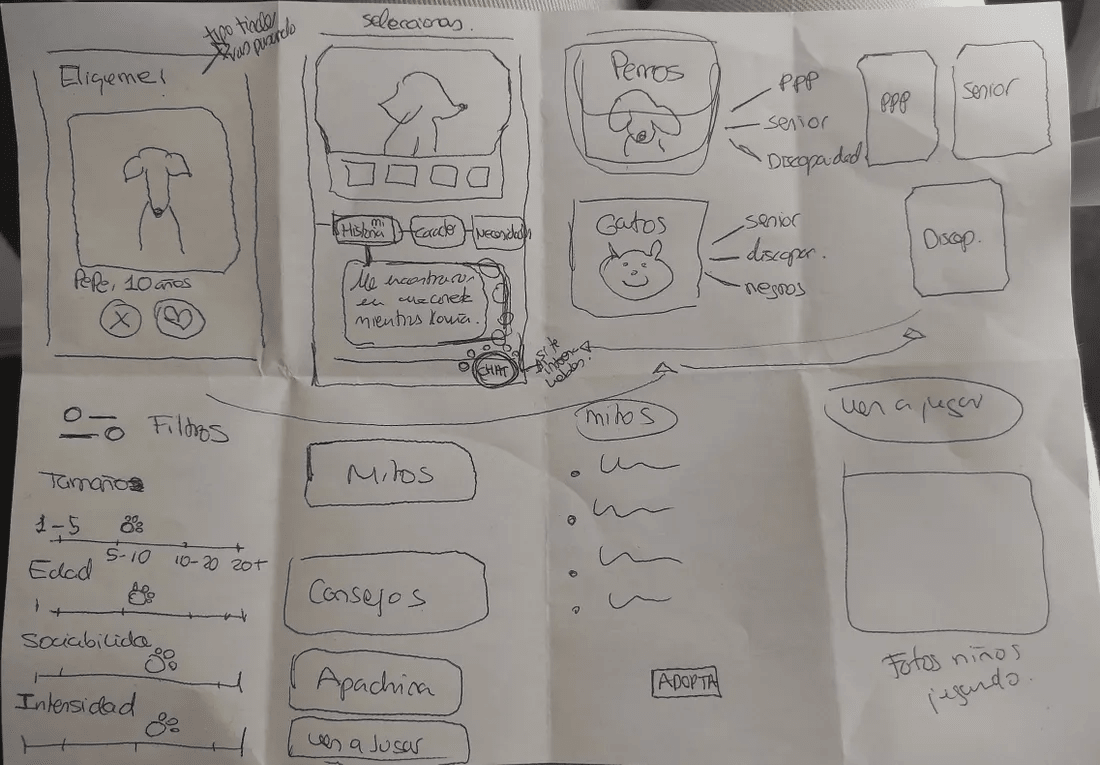 Eligeme!
tipo tinder
vas pasando
Pepe, 10 años
X
seleccionas.
mi
Historia
Caracter
Necesidad
Me encontraron
en una caneta
mientras llovía.
CHAT
si te
Perros
PPP
senior
Discapacidad
Gatos
senior
discapac.
negros
PPP
Senior
Discap.
Filtros
Tamaños
1-5
5-10
10-20
20+
Edad
1
Sociabilida
Intensidad
Mitos
Consejos
Apadrina
ven a Jugar
mitos
ADOPTA
ven a jugar
Fotos niños
jugando.